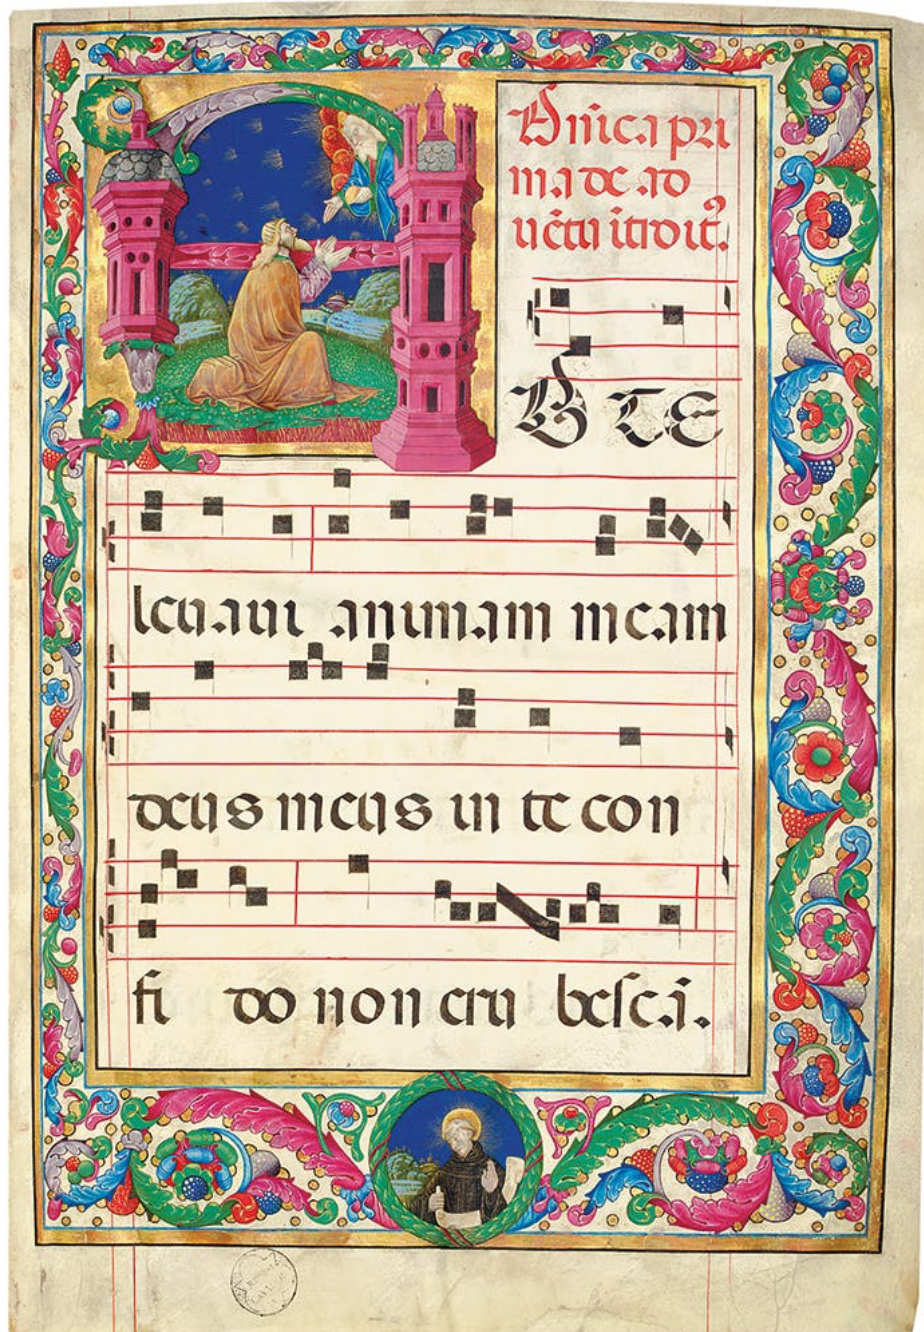 Dñica pri
ma de ad
uẽtu ĩtroit’.
AD TE
leuaui animam meam
deus meus in te con
fi do non eru bescã.